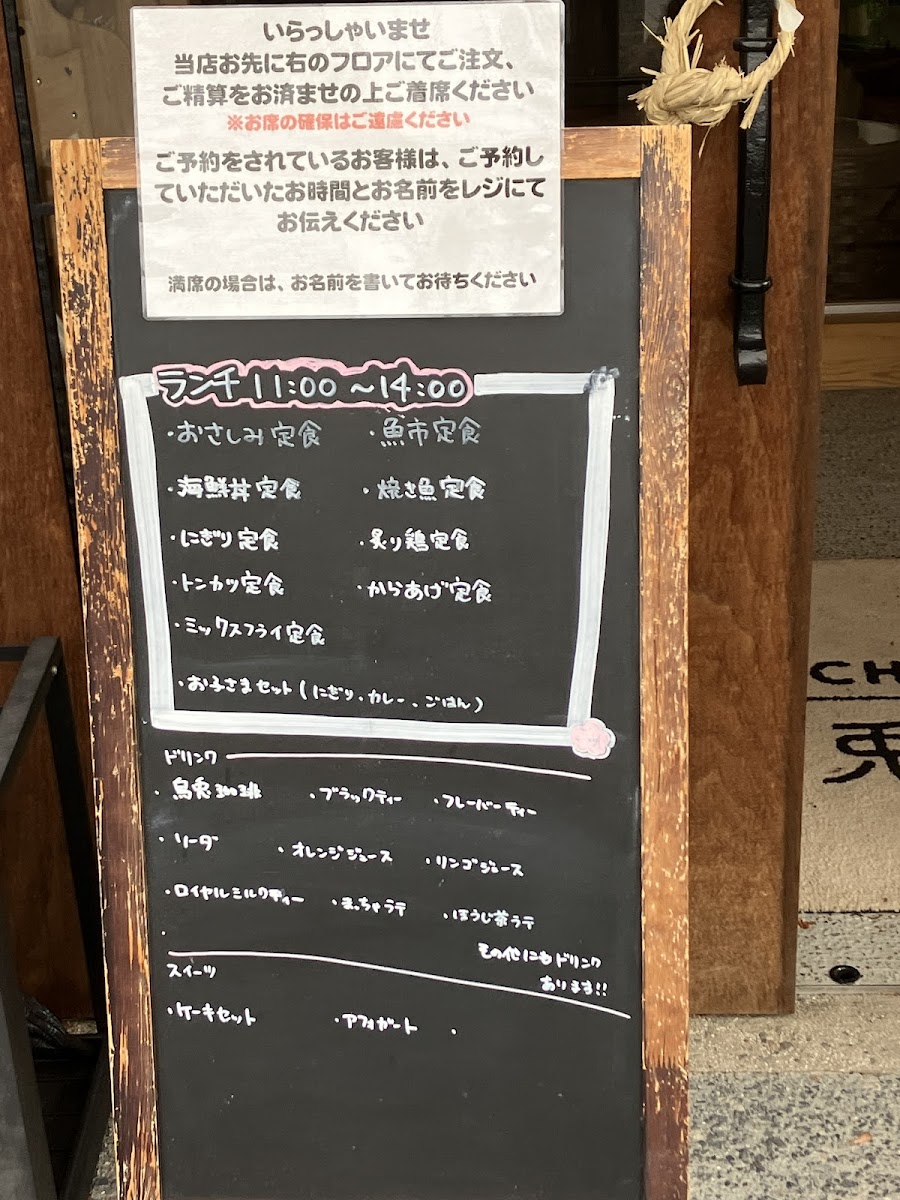 いらっしゃいませ
当店お先に右のフロアにてご注文、
ご精算をお済ませの上ご着席ください
※お席の確保はご遠慮ください
ご予約をされているお客様は、ご予約し
ていただいたお時間とお名前をレジにて
お伝えください
満席の場合は、お名前を書いてお待ちください
ランチ 11:00 ~14:00
・おさしみ定食 ・魚市定食
・海鮮丼定食 ・焼き魚定食
・にぎり定食 ・炙り鶏定食
・トンカツ定食 ・からあげ定食
・ミックスフライ定食
・お子さまセット(にぎり、カレー、ごはん)
ドリンク
・烏兎珈琲 ・ブラックティー ・フレーバーティー
・ソーダ ・オレンジジュース ・リンゴジュース
・ロイヤルミルクティー ・まっちゃラテ ・ほうじ茶ラテ
その他にもドリンク
あります!!
スイーツ
・ケーキセット ・アフォガート ・
CH
兎